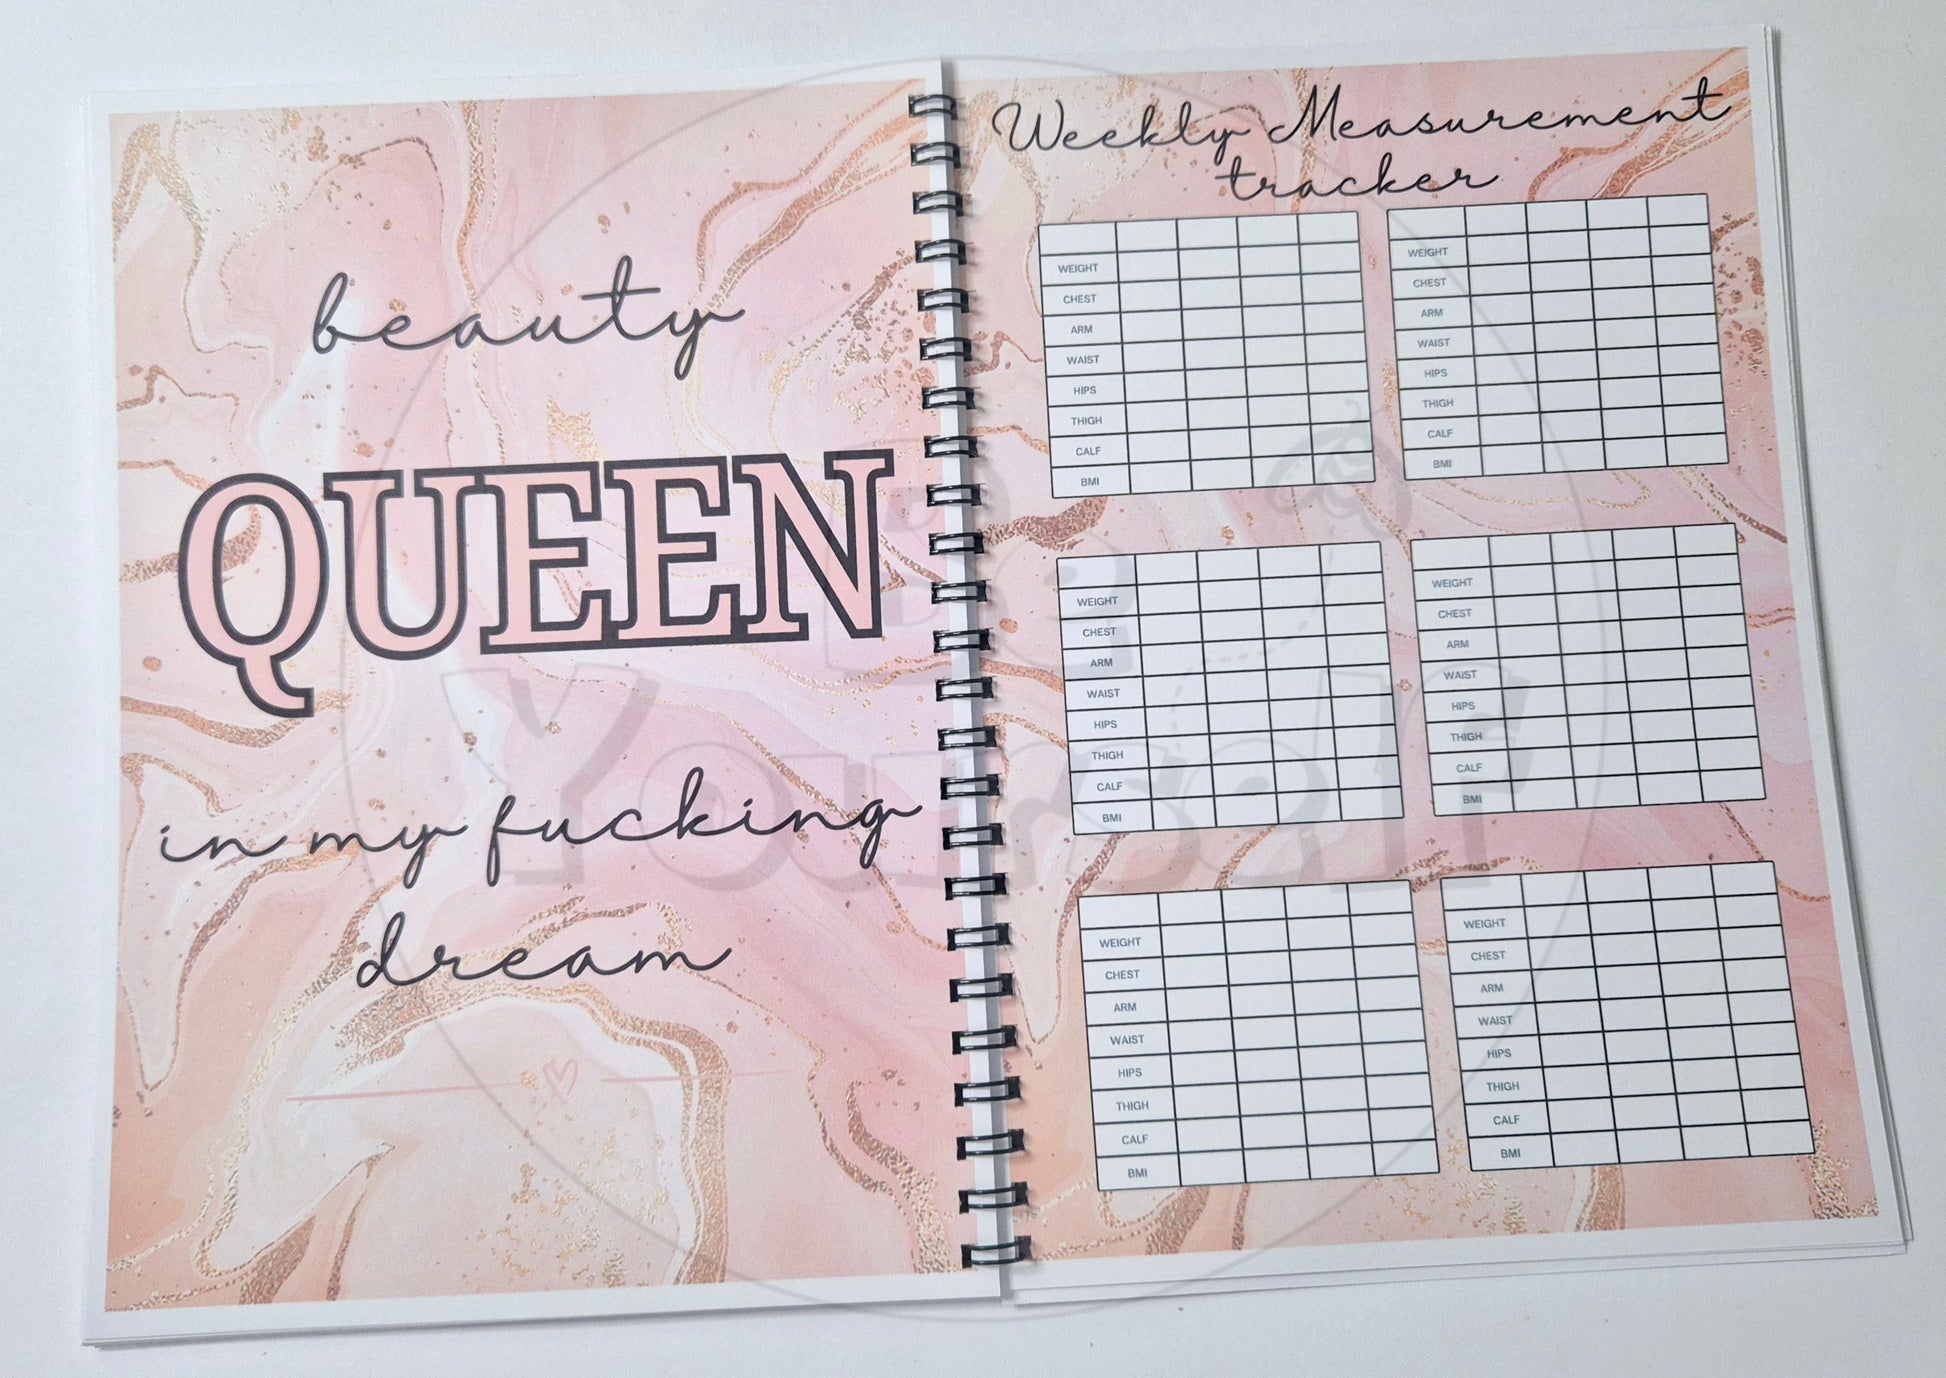 beauty
QUEEN
in my fucking
dream
Weekly Measurement
tracker
WEIGHT
CHEST
ARM
WAIST
HIPS
THIGH
CALF
BMI
WEIGHT
CHEST
ARM
WAIST
HIPS
THIGH
CALF
BMI
WEIGHT
CHEST
ARM
WAIST
HIPS
THIGH
CALF
BMI
WEIGHT
CHEST
ARM
WAIST
HIPS
THIGH
CALF
BMI
WEIGHT
CHEST
ARM
WAIST
HIPS
THIGH
CALF
BMI
WEIGHT
CHEST
ARM
WAIST
HIPS
THIGH
CALF
BMI
Be
Yourself